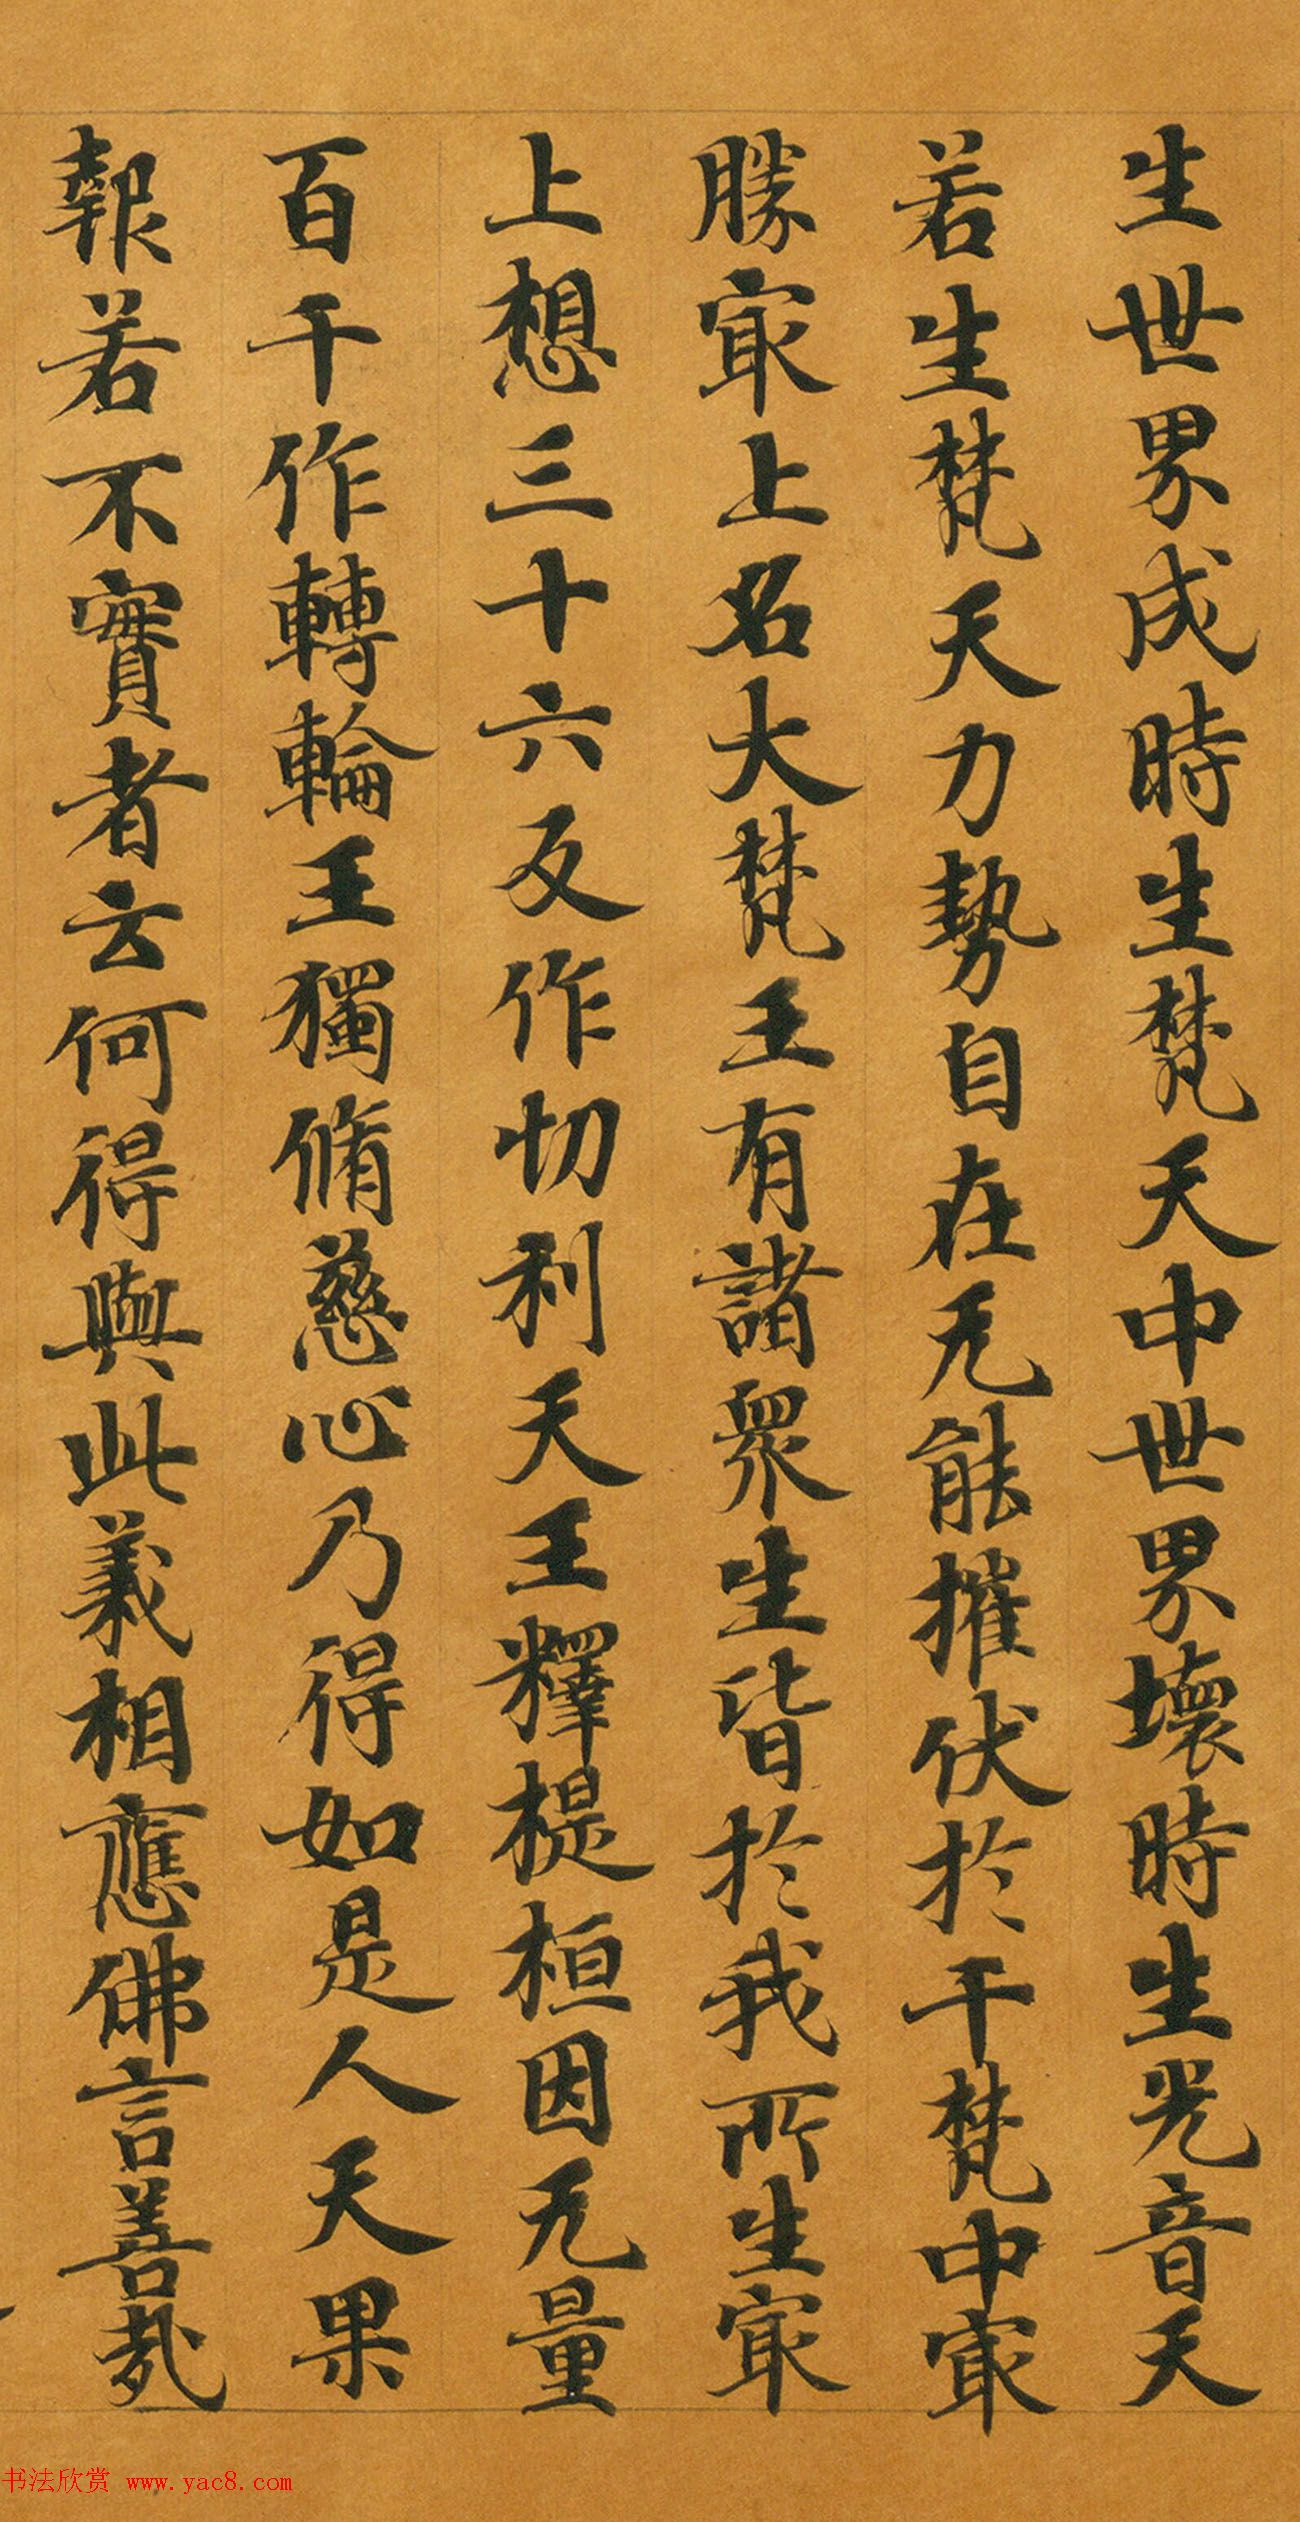 生世界成時生梵天中世界壞時生光音天
若生梵天力勢自在无能摧伏於千梵中冣
勝冣上名大梵王有諸眾生皆於我所生冣
上想三十六反作忉利天王釋提桓因无量
百千作轉輪王獨脩慈心乃得如是人天果
報若不實者云何得與此義相應佛言善哉
书法欣赏 www.yac8.com